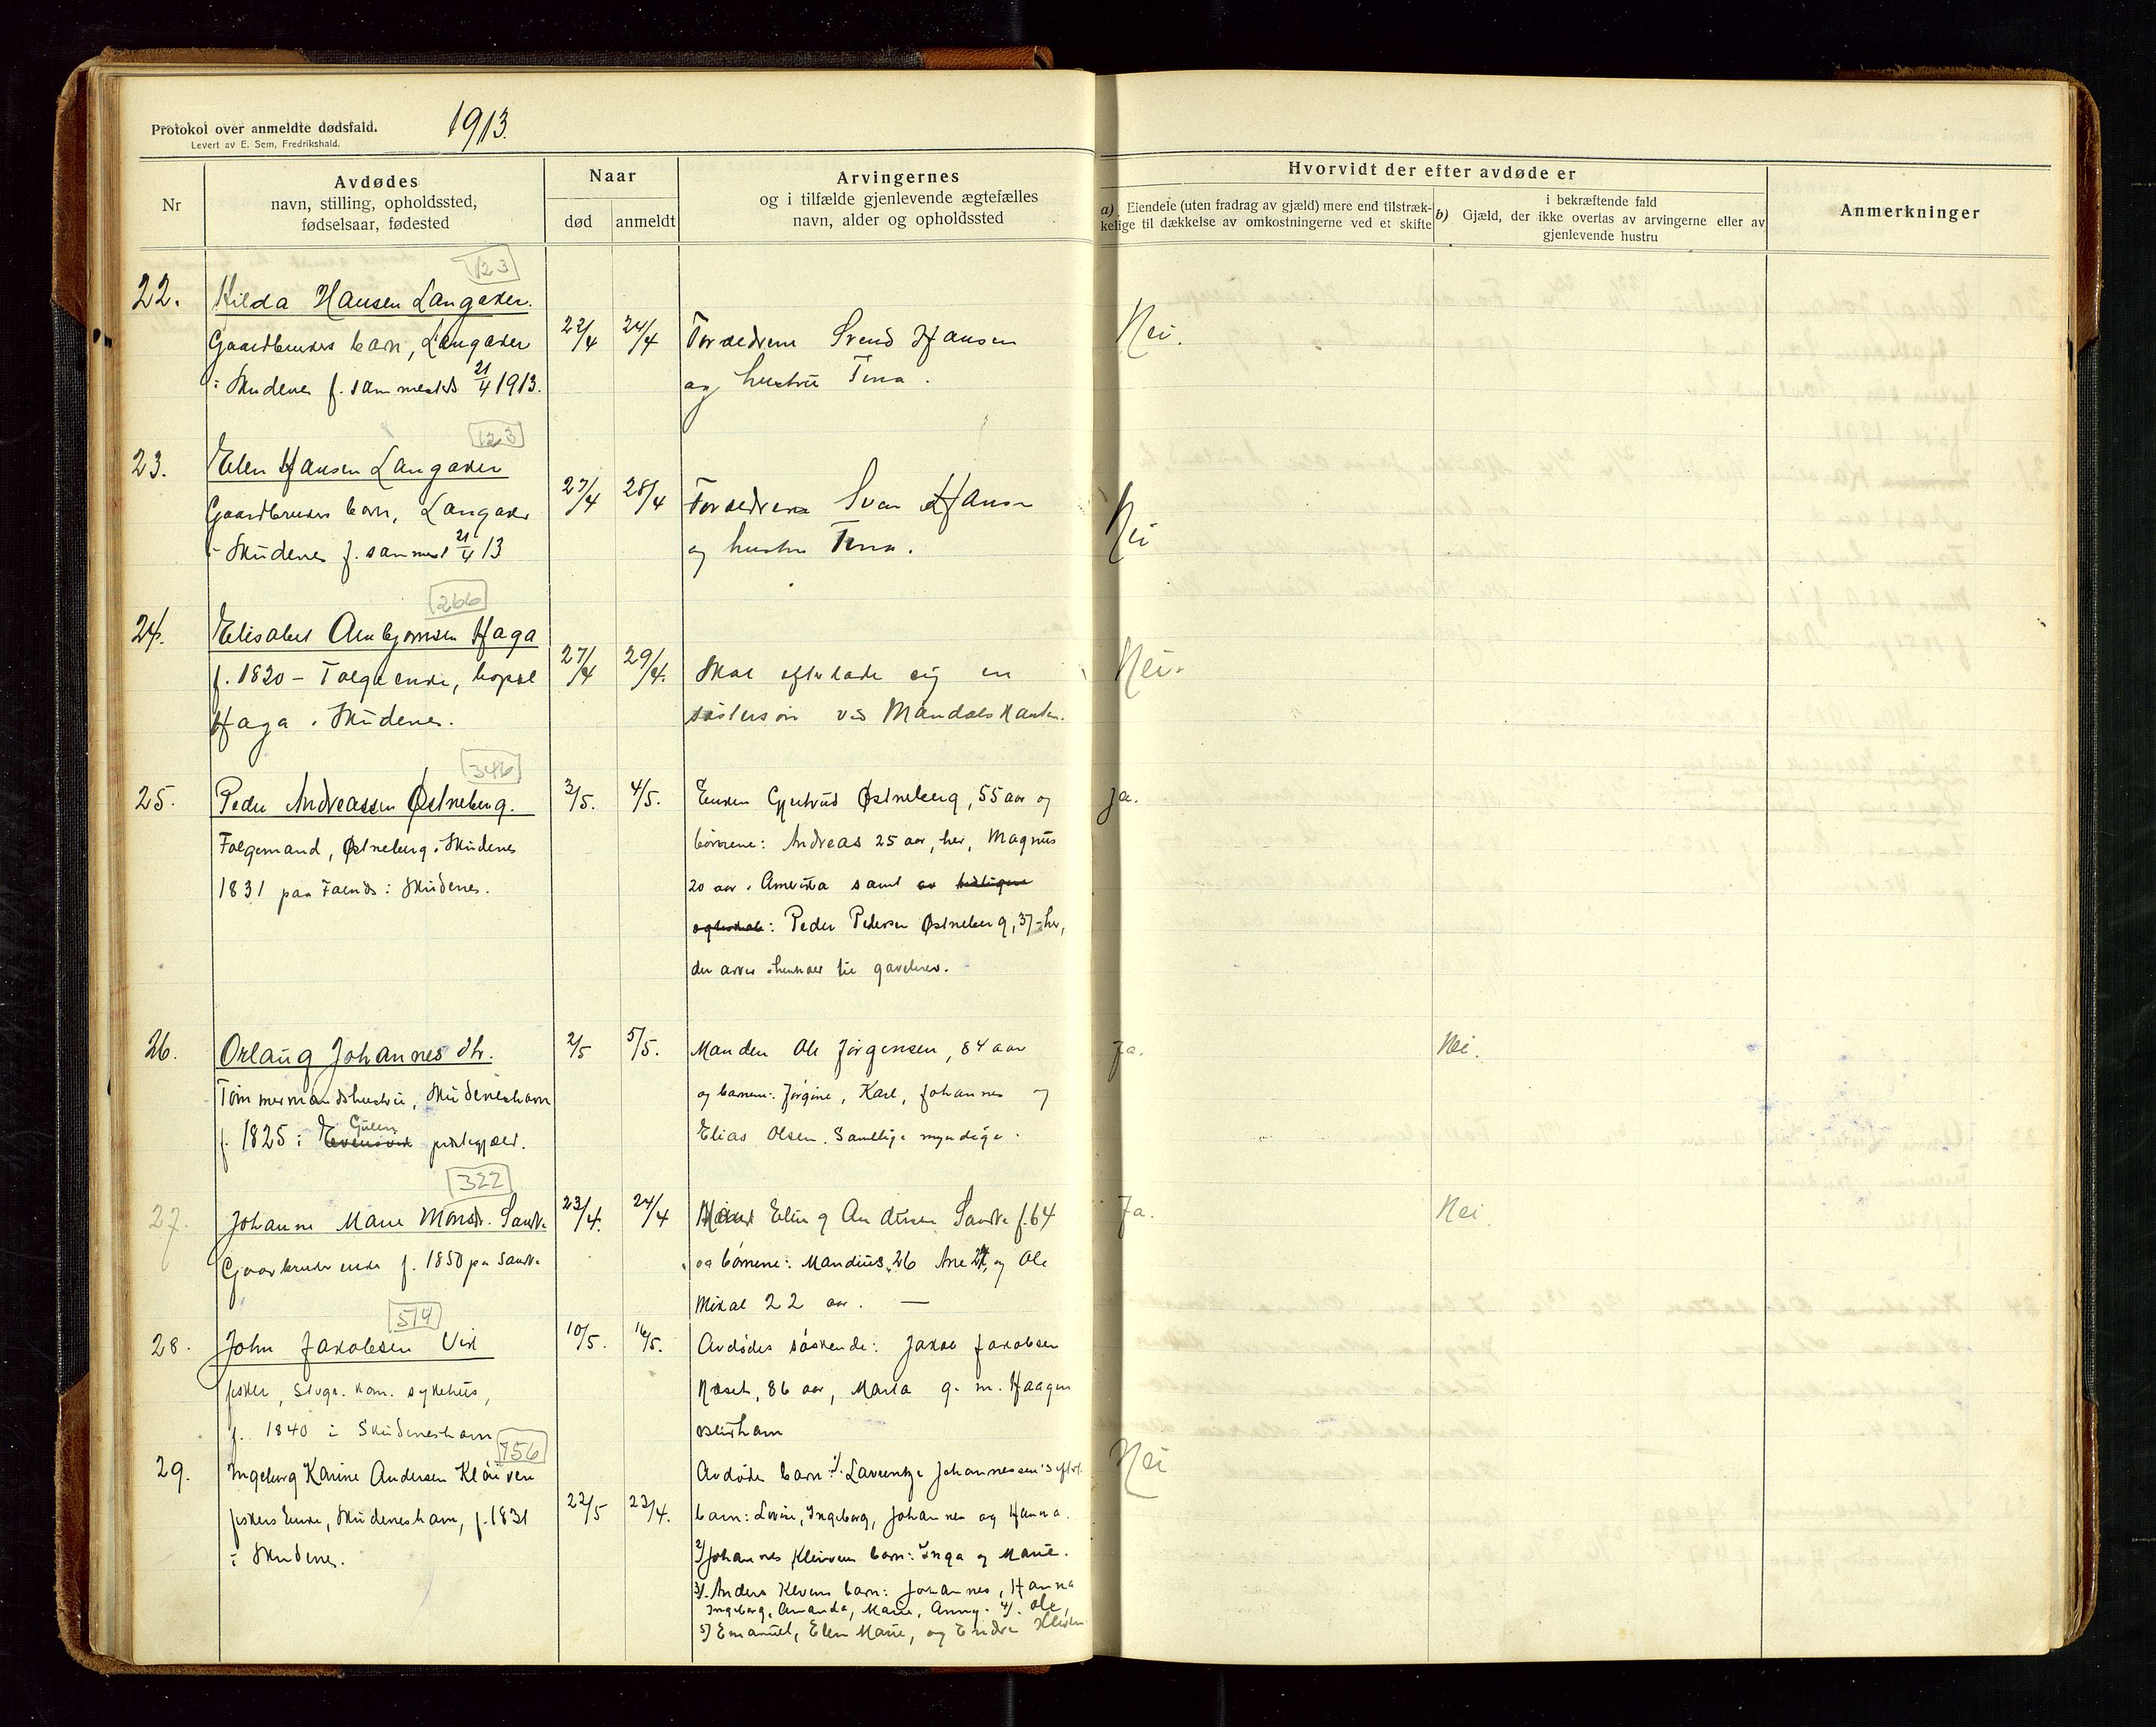 Protokol over anmeldte dødsfald.
Levert av E. Sem, Fredrikshald.
1913.
Nr
Avdødes
navn, stilling, opholdssted,
fødselsaar, fødested
Naar
død
anmeldt
Arvingernes
og i tilfælde gjenlevende ægtefælles
navn, alder og opholdssted
Hvorvidt der efter avdøde er
a) Eiendele (uten fradrag av gjæld) mere end tilstræk-
kelige til dækkelse av omkostningerne ved et skifte
b) i bekræftende fald
Gjæld, der ikke overtas av arvingerne eller av
gjenlevende hustru
Anmerkninger
123
22. Hilda Hansen Langaker.
Gaardbrukers barn, Langaker 22/4 24/4 Forældrene Svend Hansen Nei.
i Skudenes f. sammesteds 21/4 1913. og hustru Tina.
123
23. Elen Hansen Langaker
Gaardbrukers barn, Langaker 27/4 28/4 Forældrene Sven Hansen Nei
i Skudenes f. sammest 21/4 13 og hustru Tina.
266
24. Elisabet Asbjørnsen Haga
f. 1820 – Følgeenke, bopæl 27/4 29/4. Skal efterlade sig en Nei.
Haga i Skudenes. søsterson ved Mandalskanten.
346
25. Peder Andreassen Østneberg. 3/5. 4/5. Enken Gjertrud Østneberg, 55 aar og Ja.
Følgemand, Østneberg i Skudenes børnene: Andreas 25 aar, her, Magnus
1831 paa Falnes i Skudenes. 20 aar i Amerika samt av
Peder Pedersen Østneberg, 37 – her,
der arver i henhold til gavebrev.
26. Orlaug Johannesdtr. 2/5 5/5. Manden Ole Jørgensen, 84 aar Ja. Nei.
Tømmermandshustru, Skudeneshavn og barnene: Jørgine, Karl, Johannes og
f. 1825 i Evensvik Gulens prestegjæld. Elias Olsen. Samtlige myndige.
322
27. Johanne Marie Monsdr. Sandve 23/4. 24/4 Elling Andersen Sandve f. 64 Ja. Nei.
Gaardbrukerenke f. 1850 på Sandve og børnene: Mandius, 26 Ane 24, og Ole
Mikal 22 aar. —
519
28. John Jakobsen Vik 10/5. 16/5. Avdødes søskende: Jakob Jakobsen
fisker, Stvgr. kom. sykehus, Næset, 86 aar, Marta g. m. Haagen
f. 1840 i Skudeneshavn
756
29. Ingeborg Karine Andersen Kleiven Avdødes barn: 1/. Laurentze Johannessen's efterl. Nei
fiskers Enke, Skudeneshavn, f. 1831 22/5 23/4. barn: Lovise, Ingeborg, Johannes og Hanna.
i Skudenes. 2/ Johannes Kleivens barn: Inga og Marie.
3/. Anders Klevens barn: Johannes, Hanna
Ingeborg, Amanda, Marie, Anny. 4/. Ole,
5/ Emanuel, Elen Marie, og Endre Kleiven